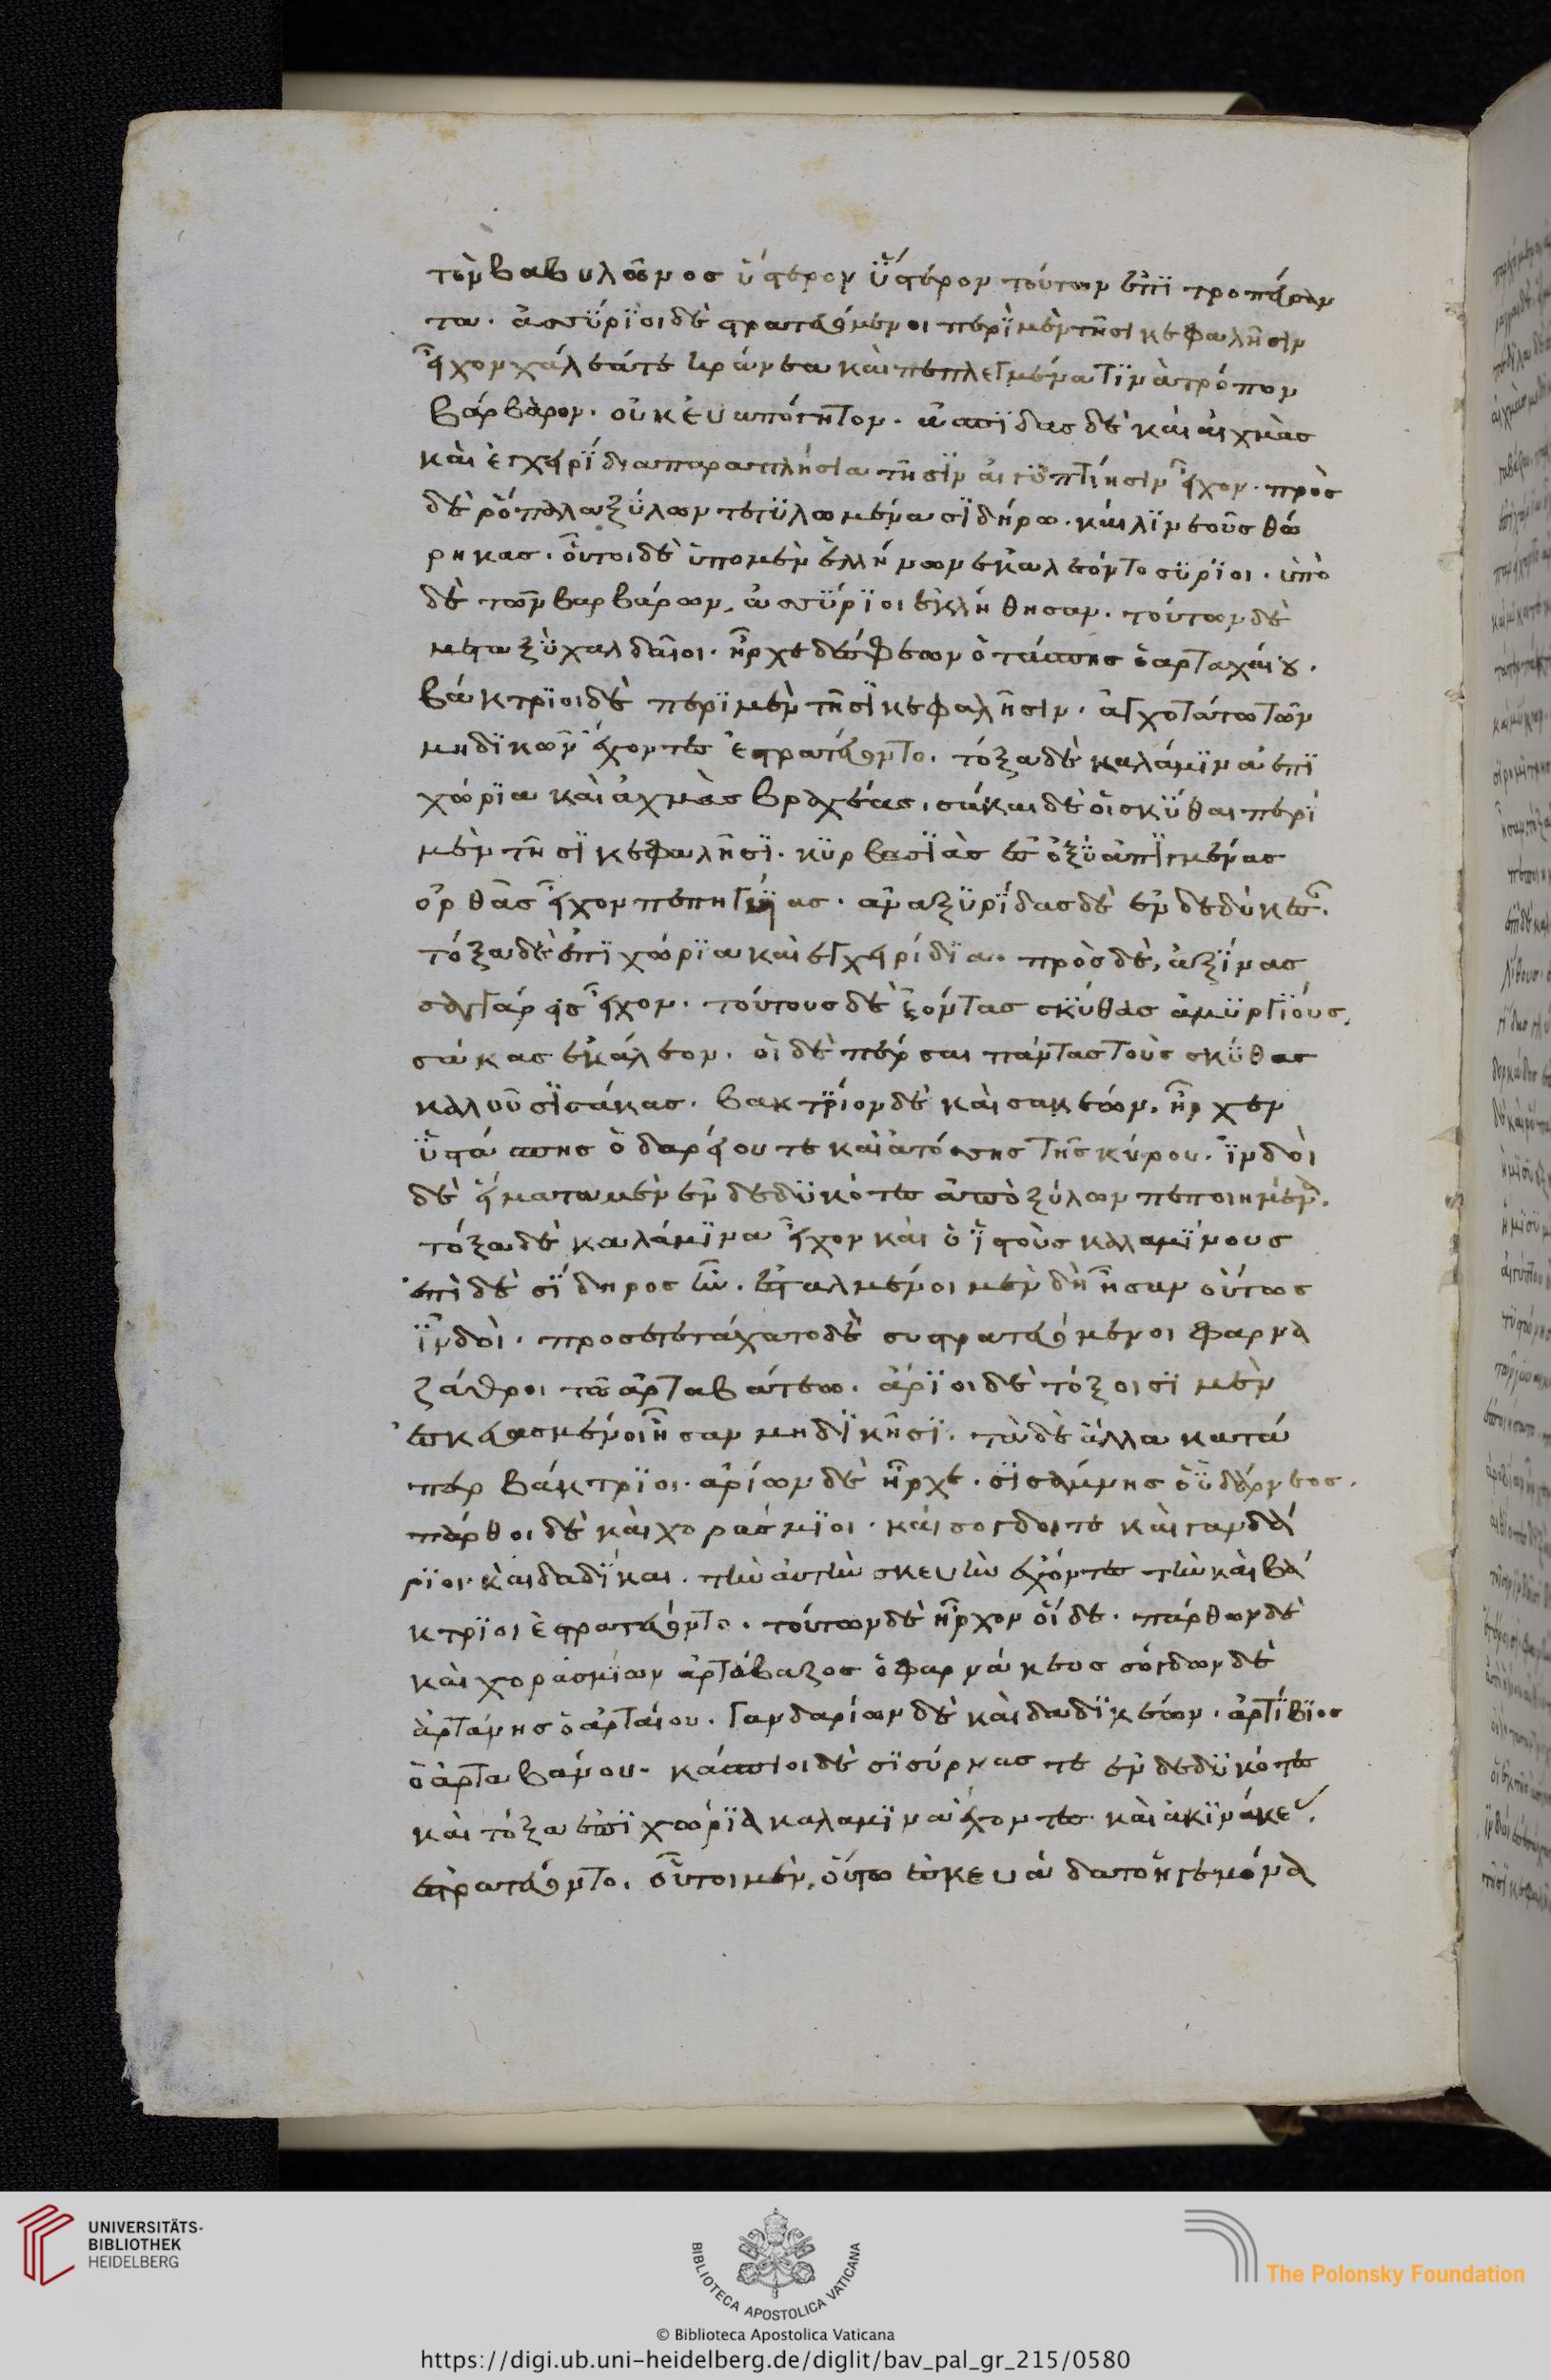 τὸν βαβυλῶνος ὕστερον ὕστερον τούτων ἐπϊτροπεύσαν
τα. ἀσσύρϊοι δὲ στρατευόμενοι περϊ μὲν τῆσι κεφαλῆσιν
εἶχον χάλκεά τε κράνεα καὶ πεπλεγμένα τϊνὰ τρόπον
βάρβαρον. οὐκ ἐυαπόγητον. ἀσπϊδας δὲ καὶ αἰχμὰς
καὶ ἐγχειρϊδια παραπλήσια τῆσϊν αἰγυπτίησιν εἶχον. πρὸς
δὲ ῥόπαλα ξύλων τετϋλωμένα σϊδήρω. καὶ λϊνεοῦς θώ
ρηκας. οὗτοι δὲ ὑπο μὲν ἑλλήνων ἐκαλεόντο σύρϊοι. ὑπὸ
δὲ τῶν βαρβάρων, ἀσσύρϊοι ἐκλήθησαν. τούτων δὲ
μεταξὺ χαλδαῖοι. ἦρχε δέ σφεων ὀτάσπης ὁ αρταχάιου.
βάκτρϊοι δὲ περϊ μὲν τῆσϊ κεφαλῆσιν. ἀγχοτάτω τῶν
μηδϊκῶν ἔχοντες ἐστρατεύοντο. τόξα δὲ καλάμϊνα ἐπϊ
χώρϊα καὶ ἀχμὰς βραχέας. σάκαι δὲ ὁι σκύθαι περϊ
μὲν τῆσϊ κεφαλῆσϊ. κυρβασϊὰς ἐς ὀξὺ ἀπϊγμένας
ὀρθὰς εἶχον πεπηγυίας. ἀναξυρϊδας δὲ ἐνδεδύκες.
τόξα δὲ ἐπϊχώρϊα καὶ ἐγχειρίδϊα. πρὸς δὲ, ἀξίνας
σαγάρεις εἶχον. τούτους δὲ ἐόντας σκύθας ἀμυργϊους,
σάκας ἐκάλεον. ὁι δὲ πέρσαι πάντας τοὺς σκύθας
καλοῦσϊ σάκας. βακτρϊων δὲ καὶ σακέων, ἦρχεν
ὑστάσπης ὁ δαρείου τε καὶ ἀτόσσης τῆς κύρου. ϊνδοὶ
δὲ εἵματα μὲν ἐνδεδυκότες ἀπὸ ξύλων πεποιημένα.
τόξα δὲ καλάμϊνα εἶχον καὶ ὀϊστοὺς καλαμϊνους
ἐπὶ δὲ σϊδηρος ἦν. ἐσταλμένοι μὲν δὴ ἦσαν οὕτως
ϊνδοὶ. προσετετάχατο δὲ συστρατευόμενοι φαρνα
ζάθρηι τῶ ἀρταβάτεω. ἄρϊοι δὲ τόξοισϊ μὲν
ἐσκευασμένοι ἦσαν μηδϊκῆσϊ. τὰ δὲ ἄλλα κατά
περ βάκτρϊοι. ἀρίων δὲ ἦρχε. σϊσάμνης ὁ ὑδάρνεος.
πάρθοι δὲ καὶ χοράσμϊοι. καὶ σογδοι τε καὶ γανδά
ρϊοι. καὶ δαδϊκαι. τὴν ἀυτὴν σκευὴν ἔχοντες τὴν καὶ βά
κτρϊοι ἐστρατεύοντο. τούτων δὲ ἦρχον οἵδε. πάρθων δὲ
καὶ χορασμϊων ἀρτάβαζος ὁ φαρνάκεως σόγδων δὲ
ἀρτάνης ὁ ἀρταίου. γανδαρίων δὲ καὶ δαδϊκέων. ἀρτϊβϊος
ὁ ἀρταβάνου. κάσπιοι δὲ σϊσύρνας τε ἐνδεδϋκότες
καὶ τόξα ἐπϊχώρϊα καλαμϊνα ἔχοντες καὶ ἀκϊνάκε.
ἐστρατεύοντο. οὗτοι μὲν, οὕτω ἐσκευάδατο ἡγεμόνα
UNIVERSITÄTS-
BIBLIOTHEK
HEIDELBERG
BIBLIOTECA APOSTOLICA VATICANA
The Polonsky Foundation
© Biblioteca Apostolica Vaticana
https://digi.ub.uni-heidelberg.de/diglit/bav_pal_gr_215/0580